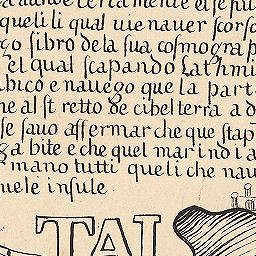 queli li qual uie nauer scorso
go libro de la sua cosmograp
el qual scapando lathmi
abico e nauego que la part
ne al st retto de cibelterra a d
se fauo affermar che que stap
ga bite e che quel mar indi a
mano tutti queli che nau
uele insule
TAL